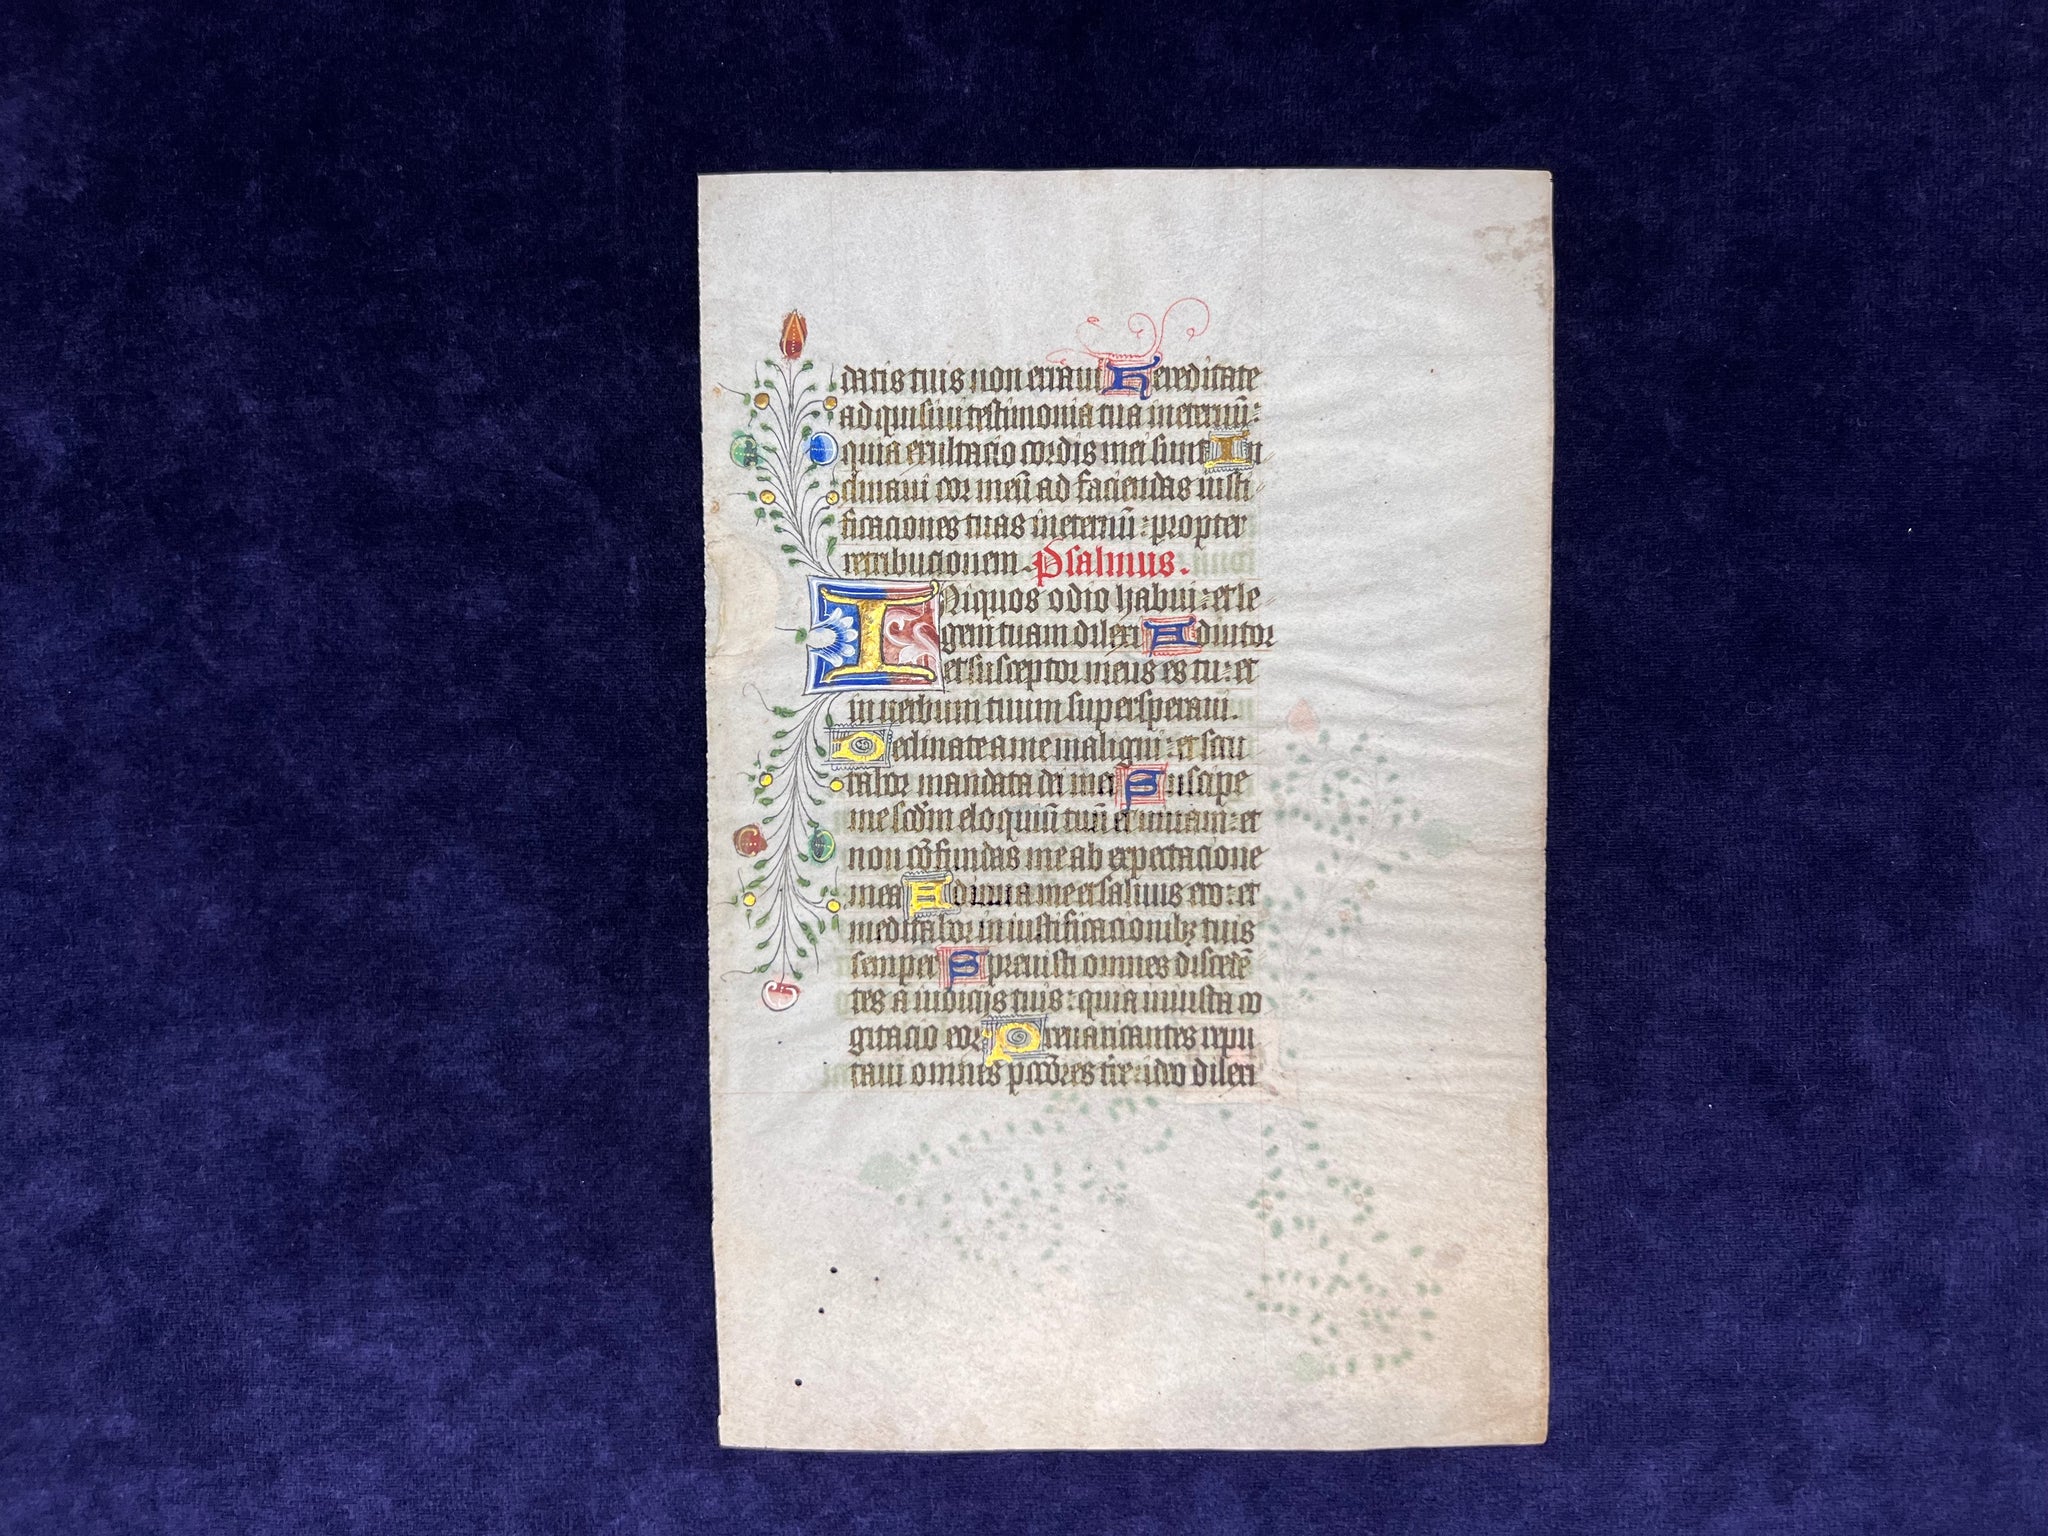 datis tuis non erraui Hereditate
adquisiui testimonia tua ineternũ:
quia exultacio cordis mei sunt In
clinaui cor meũ ad faciendas iusti
ficaciones tuas ineternũ: propter
retribucionem. Psalmus.
INiquos odio habui: et le
gem tuam dilexi Adiutor
et susceptor meus es tu: et
in uerbum tuum supersperaui.
Declinate a me maligni: et scru
tabor mandata dei mei Suscipe
me scd̃m eloquiũ tuũ et uiuam: et
non cõfundas me ab expectacione
mea Adiuua me et saluus ero: et
meditabor in iustificacionibꝫ tuis
semper Spreuisti omnes discedẽ
tes a iudiciis tuis: quia iniusta co
gitacio eoꝝ Preuaricantes repu
taui omnes pccõres tr̃e: ideo dilexi